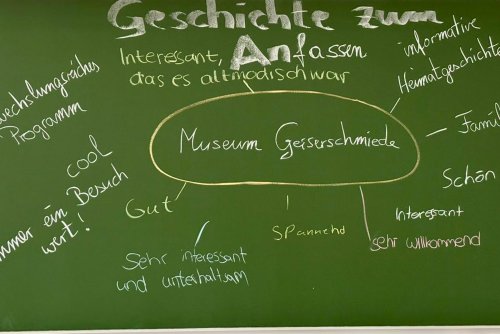 Geschichte zum
Anfassen
Interessant,
das es altmodisch war
informative
Heimatgeschichte
wechslungsreiches
Programm
Museum Geiserschmiede
Famil
cool
Schön
immer ein Besuch
wert!
Gut
Spannend
Interessant
sehr willkommend
Sehr interessant
und unterhaltsam